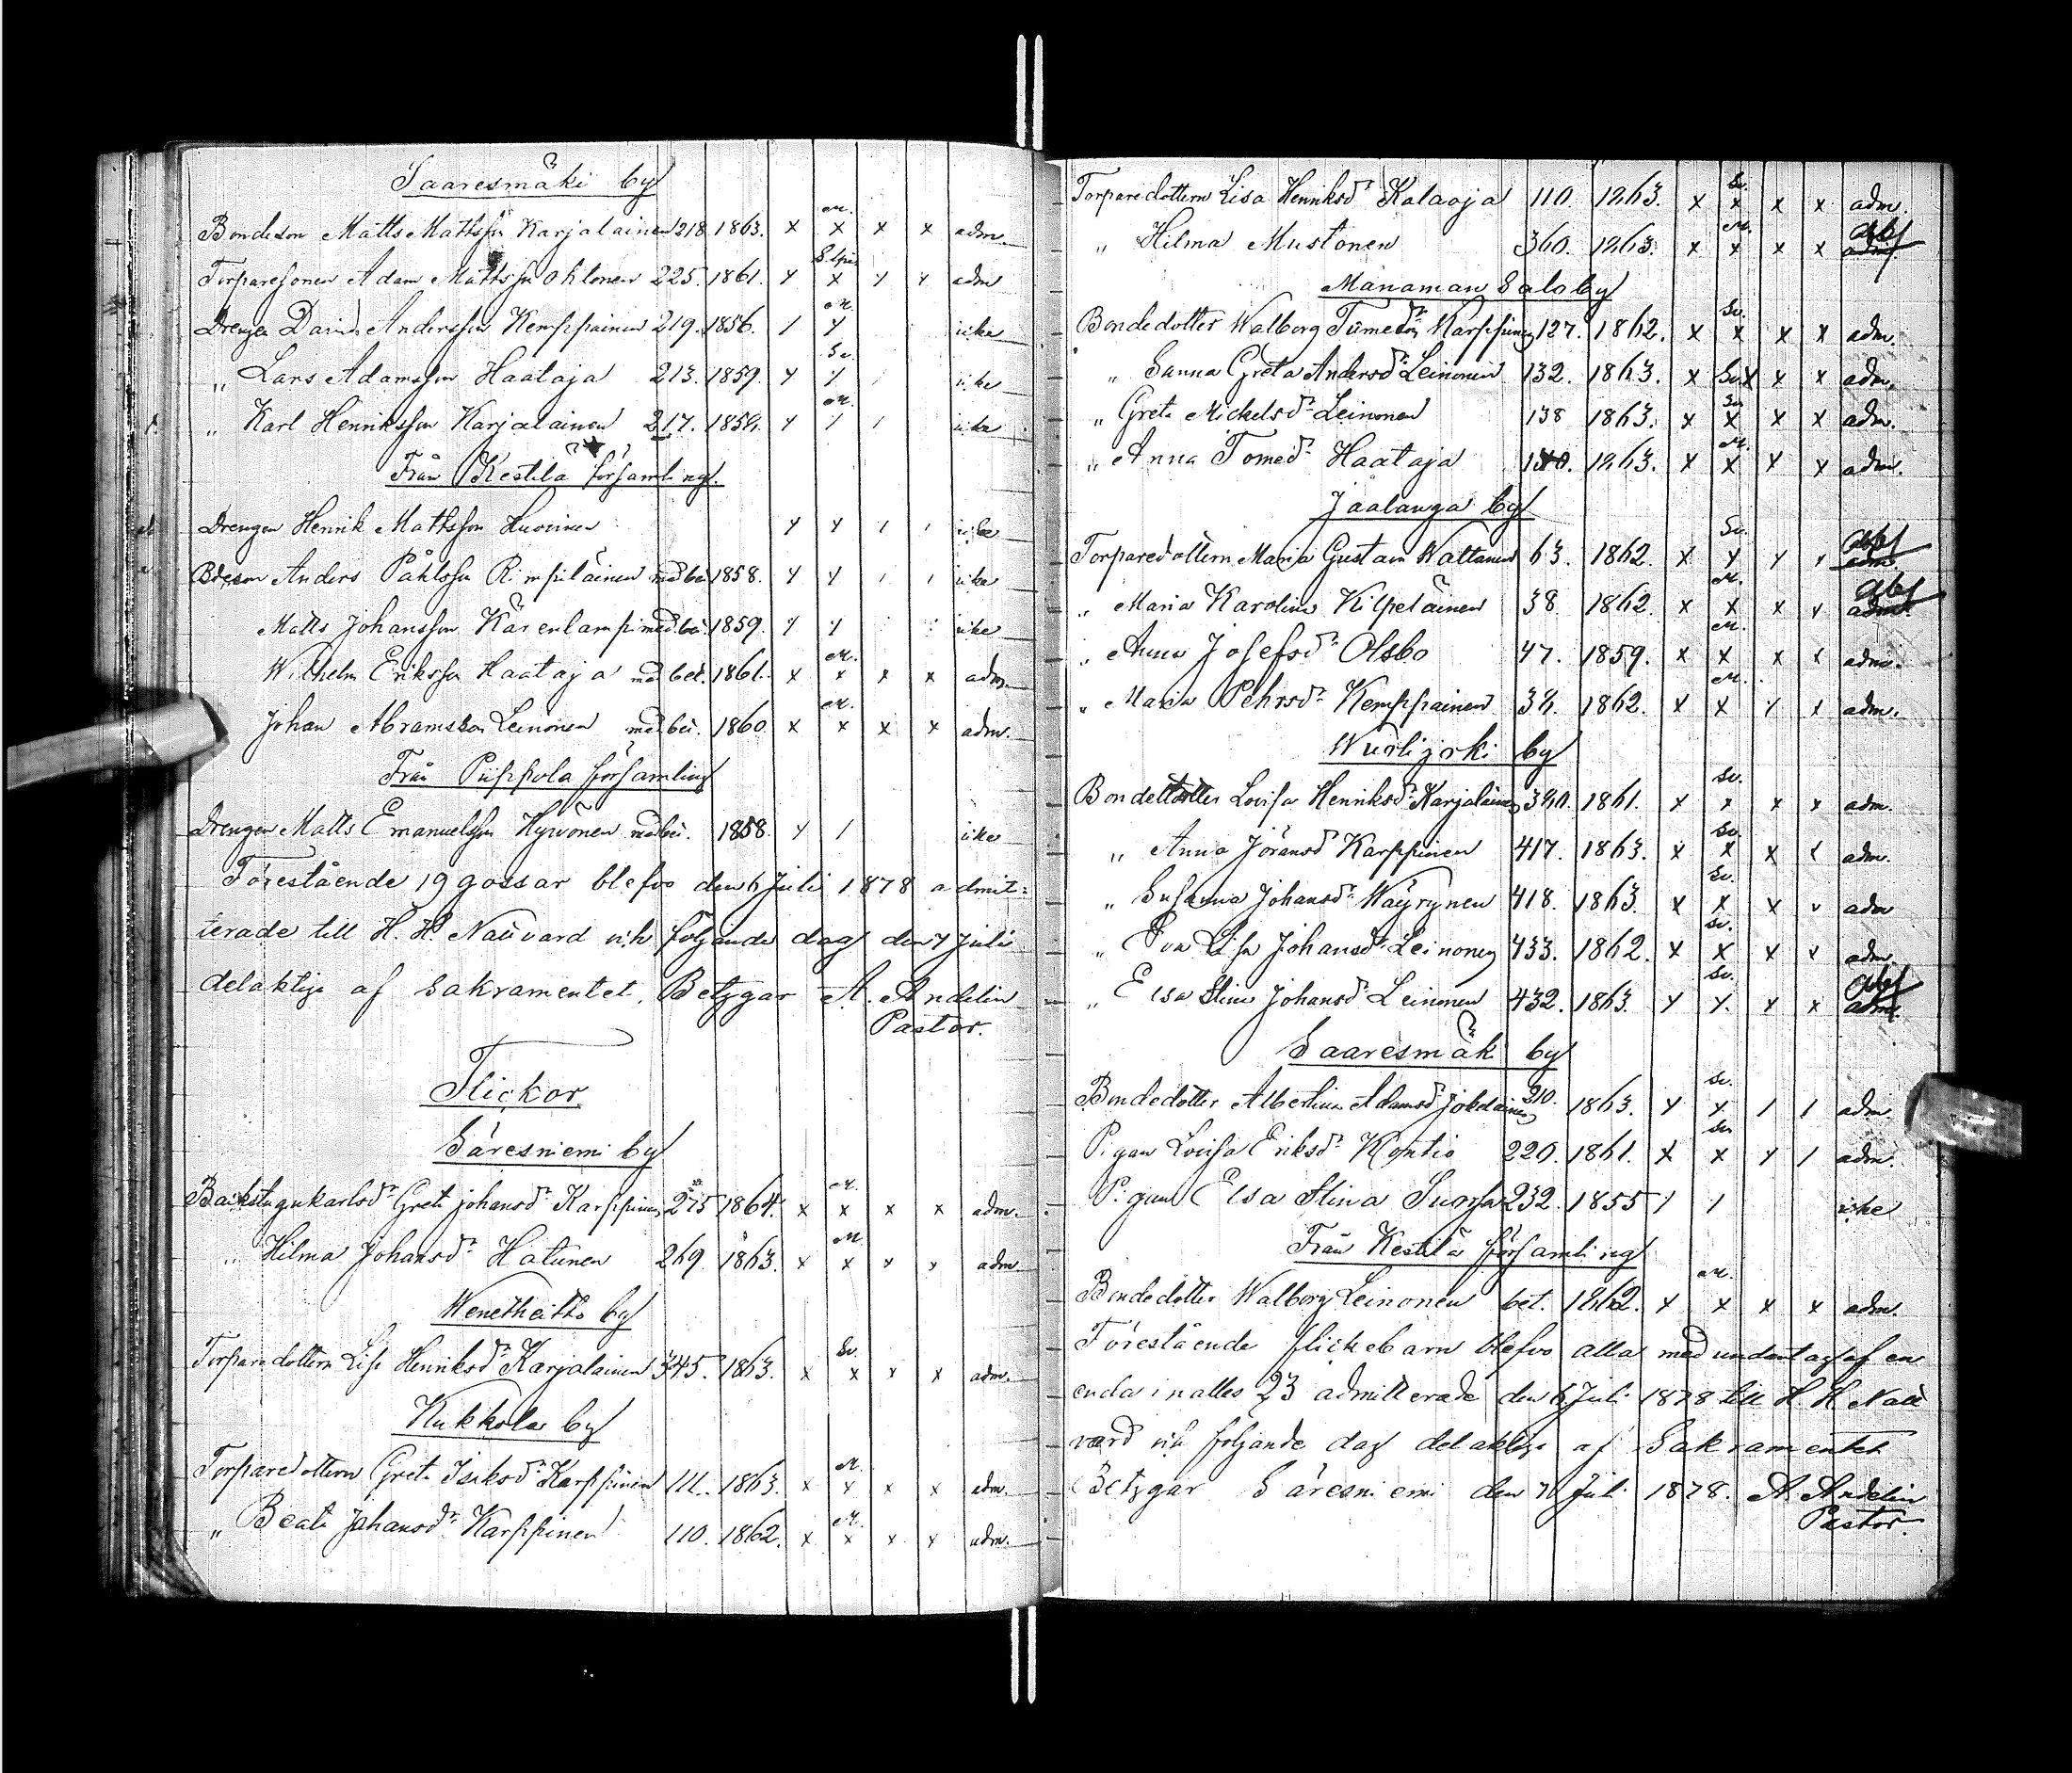 Saaresmäki by
Bondeson Matts Mattsson Karjalainen 218 1863. x M. x x x adm.
Torparesonen Adam Mattsson Ohtonen 225. 1861. x x x x adm
Drengen David Andersson Kemppainen 219. 1856. / M. x icke
„ Lars Adamsson Haataja 213. 1859. x Sv. x / icke
„ Karl Henriksson Karjalainen 217. 1858. x M. / / icke
Från Kestilä församling.
Drengen Henrik Mattsson Huovinen x x / / icke
Bdeson Anders Påhlsson Rimpiläinen med bet 1858. x x / / icke
Matts Johansson Kärenlampi med bet. 1859. x x icke
Wilhelm Eriksson Haataja med bet. 1861. x M. x x x adm.
Johan Abramsson Leinonen med bet. 1860 x M. x x x adm.
Från Piippola församling
Drengen Matts Emanuelsson Hyvönen med bet. 1858. x / icke
Förestående 19 gossar blefvo den 6 Juli 1878 admit=
terade till H. H. Nattvard och följande dag den 7 Juli
delaktige af Sakramentet. Betygar A. Andelin
Pastor.
Flickor
Säresniemi by
Backstugukarlsdr Greta Johansdr Karppinen 275 1864. x M. x x x adm.
„ Hilma Johansdr Hatunen 269. 1863. x M. x x x adm.
Wenetheitto by
Torparedottern Lisa Henriksdr Karjalainen 345. 1863. x Sv. x x x adm.
Kukkola by
Torparedottern Greta Isaksdr Karppinen 111. 1863. x M. x x x adm.
„ Beata Johansdr Karppinen 110. 1862. x M. x x x adm.
Torparedottern Lisa Henriksdr Kalaoja 110. 1863. x Sv. x x x adm.
„ Hilma Mustonen 360. 1863. x M. x x x adm.
Manaman Salo by
Bondedotter Walborg Tomedr Karppinen 127. 1862. x Sv. x x x adm.
„ Sanna Greta Andersdr Leinonen 132. 1863. x Sv. x x x adm.
„ Greta Mickelsdr Leinonen 138 1863. x Sv x x x adm.
„ Anna Tomedr Haataja 1863. x M. x x x adm.
Jaalanga by
Torparedottern Maria Gustava Wattanen 63. 1862. x Sv. x x x adm.
„ Maria Karolina Kilpeläinen 38. 1862. x M. x x x adm.
„ Anna Josefsdr Olsbo 47. 1859. x M. x x x adm.
„ Maria Pehrsdr Kemppainen 34. 1862. x M. x x x adm.
Wuolijoki by
Bondedotter Lovisa Henriksdr Karjalainen 340. 1861. x Sv. x x x adm.
„ Anna Jöransdr Karppinen 417. 1863. x Sv. x x x adm.
„ Susanna Johansdr Wäyrynen 418. 1863. x Sv. x x x adm
„ Eva Lisa Johansdr Leinonen 433. 1862. x Sv. x x x adm.
„ Elsa Stina Johansdr Leinonen 432. 1863. x Sv. x x x adm.
Saaresmäki by
Bondedotter Albertina Adamsdr Jokelainen 210. 1863. x Sv. x / / adm.
Pigan Lovisa Eriksdr Kontio 220. 1861. x Sv x x / adm.
Pigan Elsa Stina Suorsa 232. 1855 / / icke
Från Kestilä församling
Bondedotter Walborg Leinonen bet. 1862. x M. x x x adm.
Förestående flickebarn blefvo alla med undantag af en
enda inalles 23 admitterade den 6 Juli 1878 till H. H. Natt
vard och följande dag delaktige af Sakramentet
Betygar Säresniemi den 7 Juli 1878. A. Andelin
Pastor.